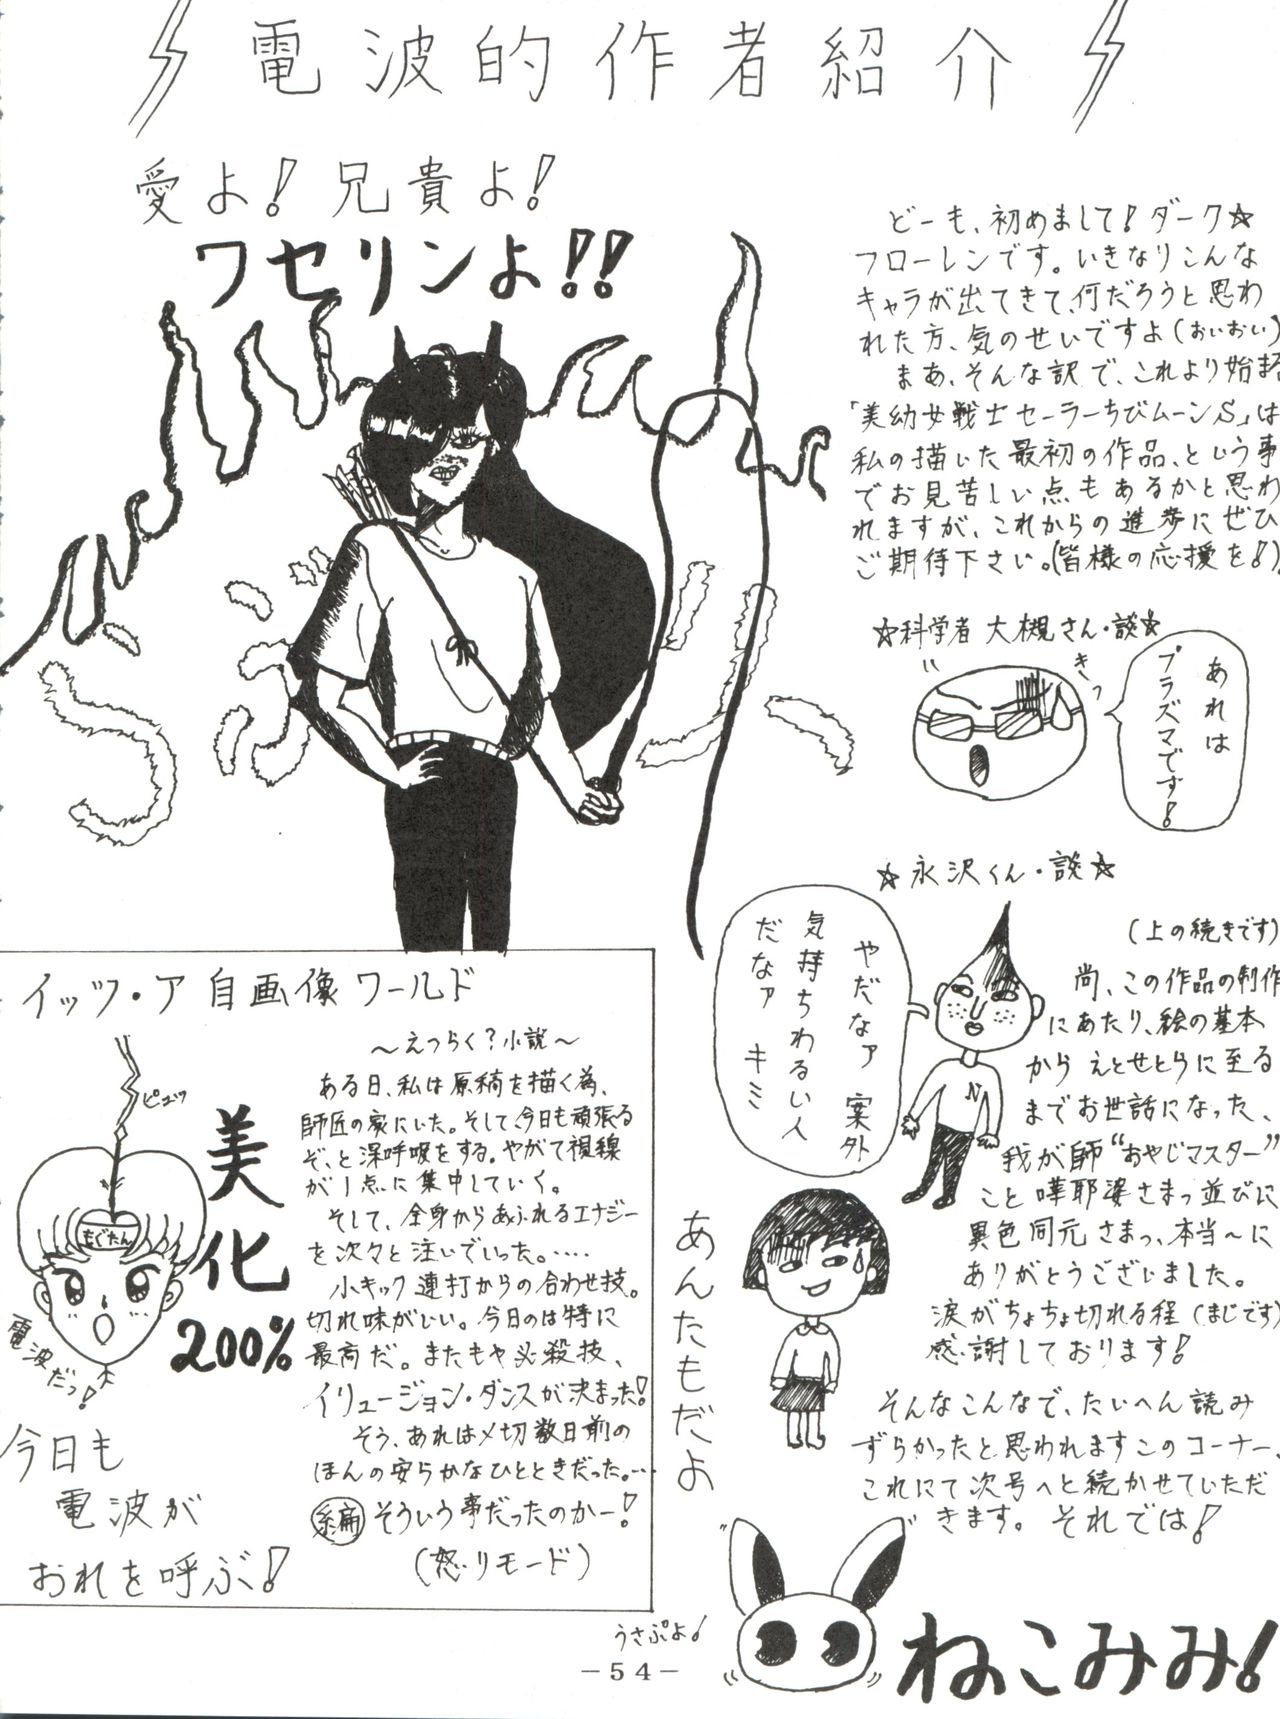 電波的作者紹介
愛よ！兄貴よ！
ワセリンよ！！
どーも、初めまして！ダーク☆
フローレンです。いきなりこんな
キャラが出てきて、何だろうと思わ
れた方、気のせいですよ（おいおい）
まあ、そんな訳で、これより始まる
「美幼女戦士セーラーちびムーンS」は
私の描いた最初の作品、という事
でお見苦しい点もあるかと思わ
れますが、これからの進歩にぜひ
ご期待下さい。（皆様の応援を！）。
☆科学者 大槻さん・談☆
きっ
あれは
プラズマです！
☆永沢くん・談☆
やだなァ 案外
気持ちわるい人
だなァ キミ
N
あんたもだよ
（上の続きです）
尚、この作品の制作
にあたり、絵の基本
から えとせとらに至る
までお世話になった、
我が師“おやじマスター”
こと 嘩耶婆さまっ並びに
異色同元さまっ、本当〜に
ありがとうございました。
涙がちょちょ切れる程（まじです）
感謝しております！
そんなこんなで、たいへん読み
ずらかったと思われますこのコーナー、
これにて次号へと続かせていただ
きます。それでは！
イッツ・ア 自画像ワールド
ピュッ
美化
200%
もぐたん
電波だっ！
今日も
電波が
おれを呼ぶ！
〜えつらく？小説〜
ある日、私は原稿を描く為、
師匠の家にいた。そして、今日も頑張る
ぞ、と深呼吸をする。やがて視線
が1点に集中していく。
そして、全身からあふれるエナジー
を次々と注いでいった。‥‥
小キック連打からの合わせ技。
切れ味がいい。今日のは特に
最高だ。またもや必殺技、
イリュージョン・ダンスが決まった！
そう、あれは〆切数日前の
ほんの安らかなひとときだった。‥
編 そういう事だったのかー！
（怒リモード）
うさぷよ！
ねこみみ！
−54−